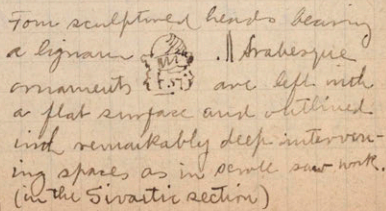 Four sculptured heads bearing
a lignam . || Arabesque
ornaments are left with
a flat surface and outlined
with remarkably deep interven-
ing spaces as in scroll saw work.
(in the Sivaitic section)